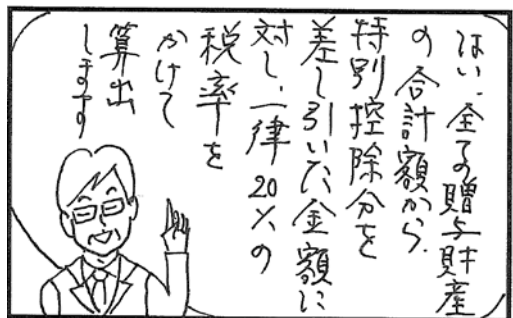 はい、全ての贈与財産
の合計額から、
特別控除分を
差し引いた金額に
対し、一律20%の
税率を
かけて
算出
します